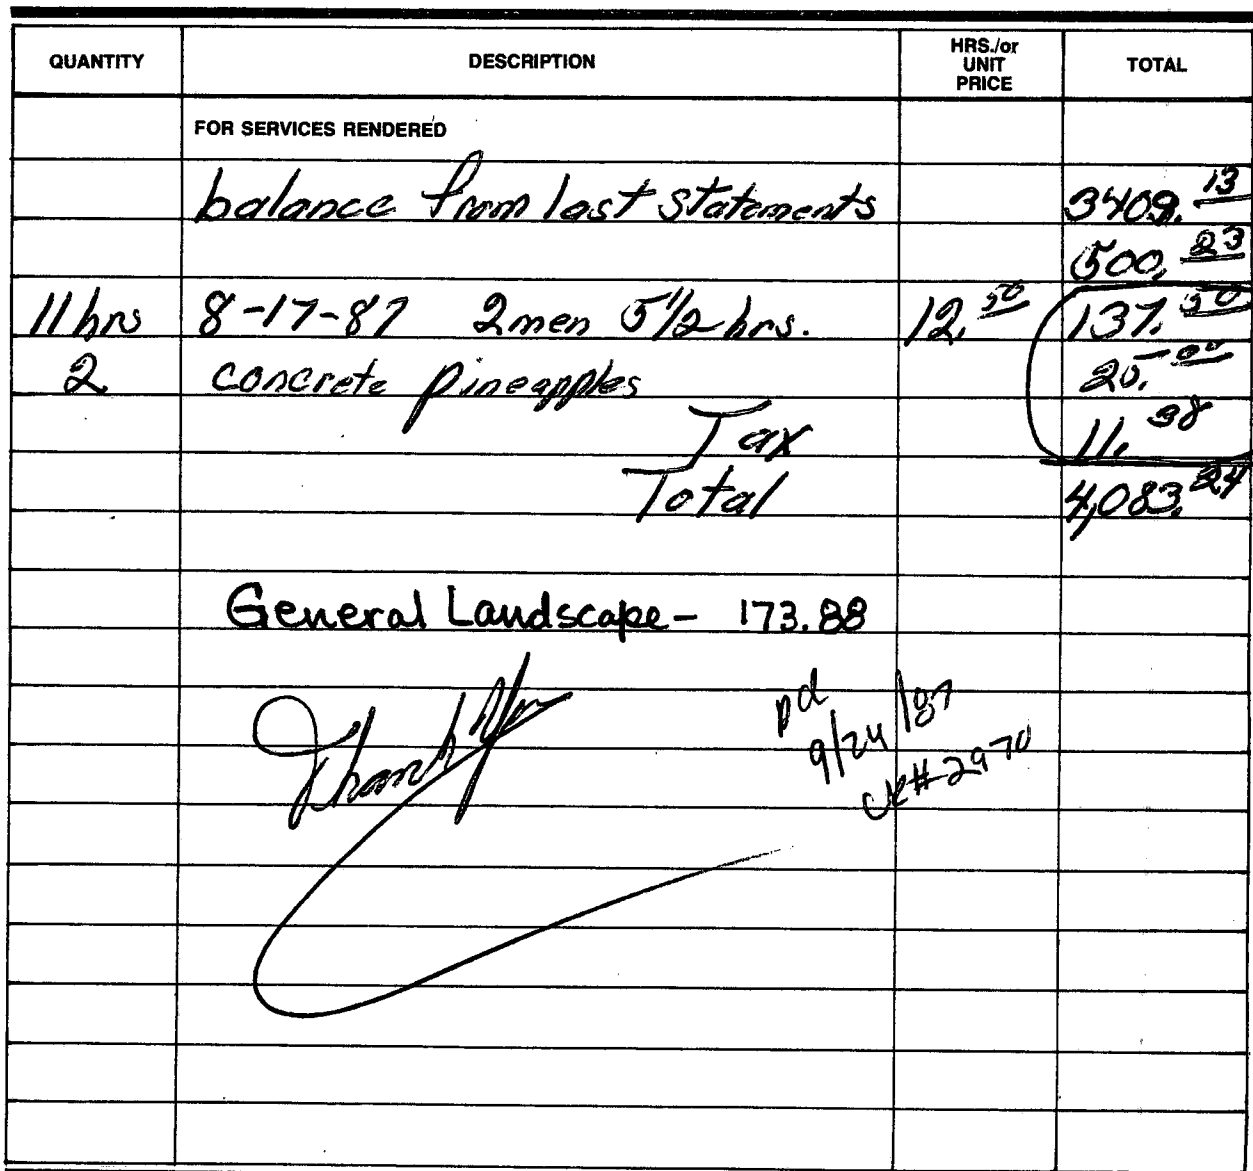 QUANTITY DESCRIPTION HRS./or UNIT PRICE TOTAL
FOR SERVICES RENDERED
balance from last statements 3409.13
500.23
11 hrs 8-17-87 2 men 5 1/2 hrs. 12.50 137.50
2 concrete pineapples 25.00
Tax 11.38
Total 4,083.24
General Landscape - 173.88
Thank You
pd
9/24/87
ck# 2970